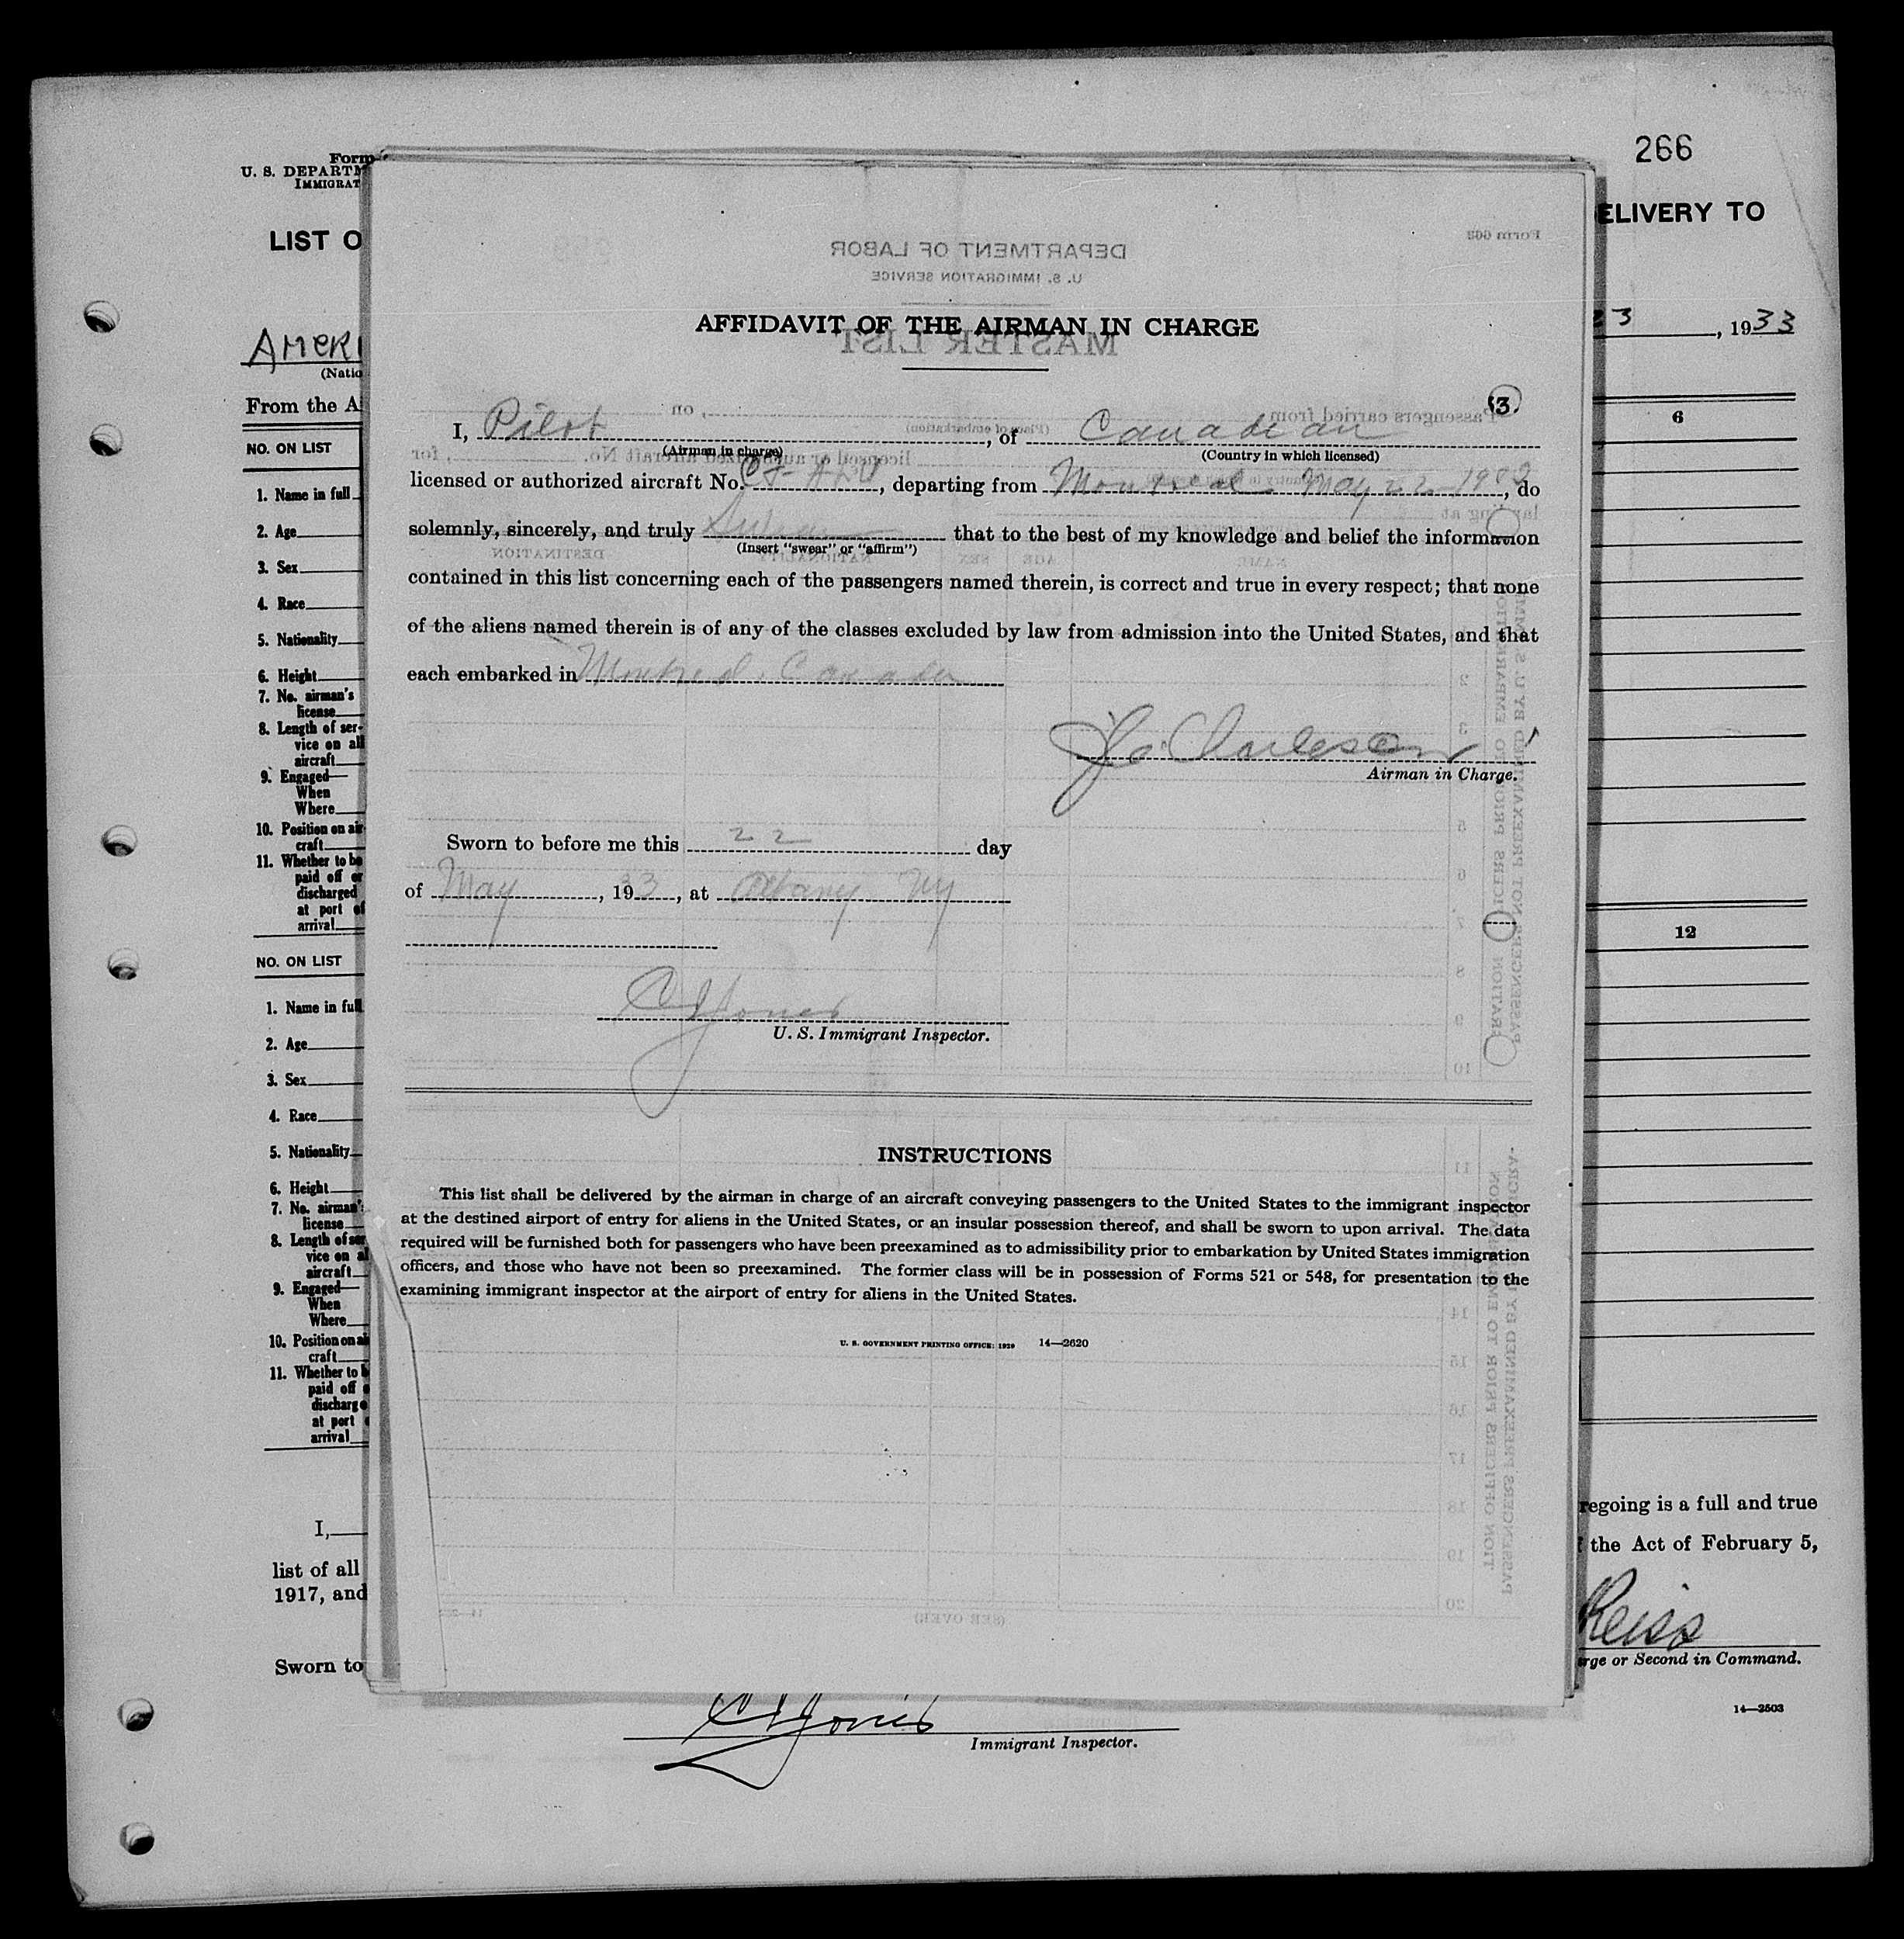 266
Form
U. S. DEPARTM
IMMIGRAT
LIST O
ELIVERY TO
AMERI
(Natio
23, 1933
From the A
NO. ON LIST
6
1. Name in full
2. Age
3. Sex
4. Race
5. Nationality
6. Height
7. No. airman's
license
8. Length of ser-
vice on all
aircraft
9. Engaged—
When
Where
10. Position on air-
craft
11. Whether to be
paid off or
discharged
at port of
arrival
NO. ON LIST
12
1. Name in full
2. Age
3. Sex
4. Race
5. Nationality
6. Height
7. No. airman's
license
8. Length of ser
vice on al
aircraft
9. Engaged—
When
Where
10. Position on ai
craft
11. Whether to b
paid off o
discharge
at port o
arrival
I,
regoing is a full and true
list of all
f the Act of February 5,
1917, and
Reiss
Sworn to
rge or Second in Command.
14—2503
C Jones
Immigrant Inspector.
Form 663
DEPARTMENT OF LABOR
U. S. IMMIGRATION SERVICE
AFFIDAVIT OF THE AIRMAN IN CHARGE
MASTER LIST
3
I, Pilot, of Canadian
(Airman in charge) (Country in which licensed)
licensed or authorized aircraft No. CF-, departing from Montreal May 22-19, do
solemnly, sincerely, and truly that to the best of my knowledge and belief the information
(Insert "swear" or "affirm")
contained in this list concerning each of the passengers named therein, is correct and true in every respect; that none
of the aliens named therein is of any of the classes excluded by law from admission into the United States, and that
each embarked in Montreal, Canada
Charleson
Airman in Charge.
Sworn to before me this 22 day
of May, 1933, at Albany NY
C Jones
U. S. Immigrant Inspector.
INSTRUCTIONS
This list shall be delivered by the airman in charge of an aircraft conveying passengers to the United States to the immigrant inspector
at the destined airport of entry for aliens in the United States, or an insular possession thereof, and shall be sworn to upon arrival. The data
required will be furnished both for passengers who have been preexamined as to admissibility prior to embarkation by United States immigration
officers, and those who have not been so preexamined. The former class will be in possession of Forms 521 or 548, for presentation to the
examining immigrant inspector at the airport of entry for aliens in the United States.
U. S. GOVERNMENT PRINTING OFFICE: 1929 14—2620
(SEE OVER)